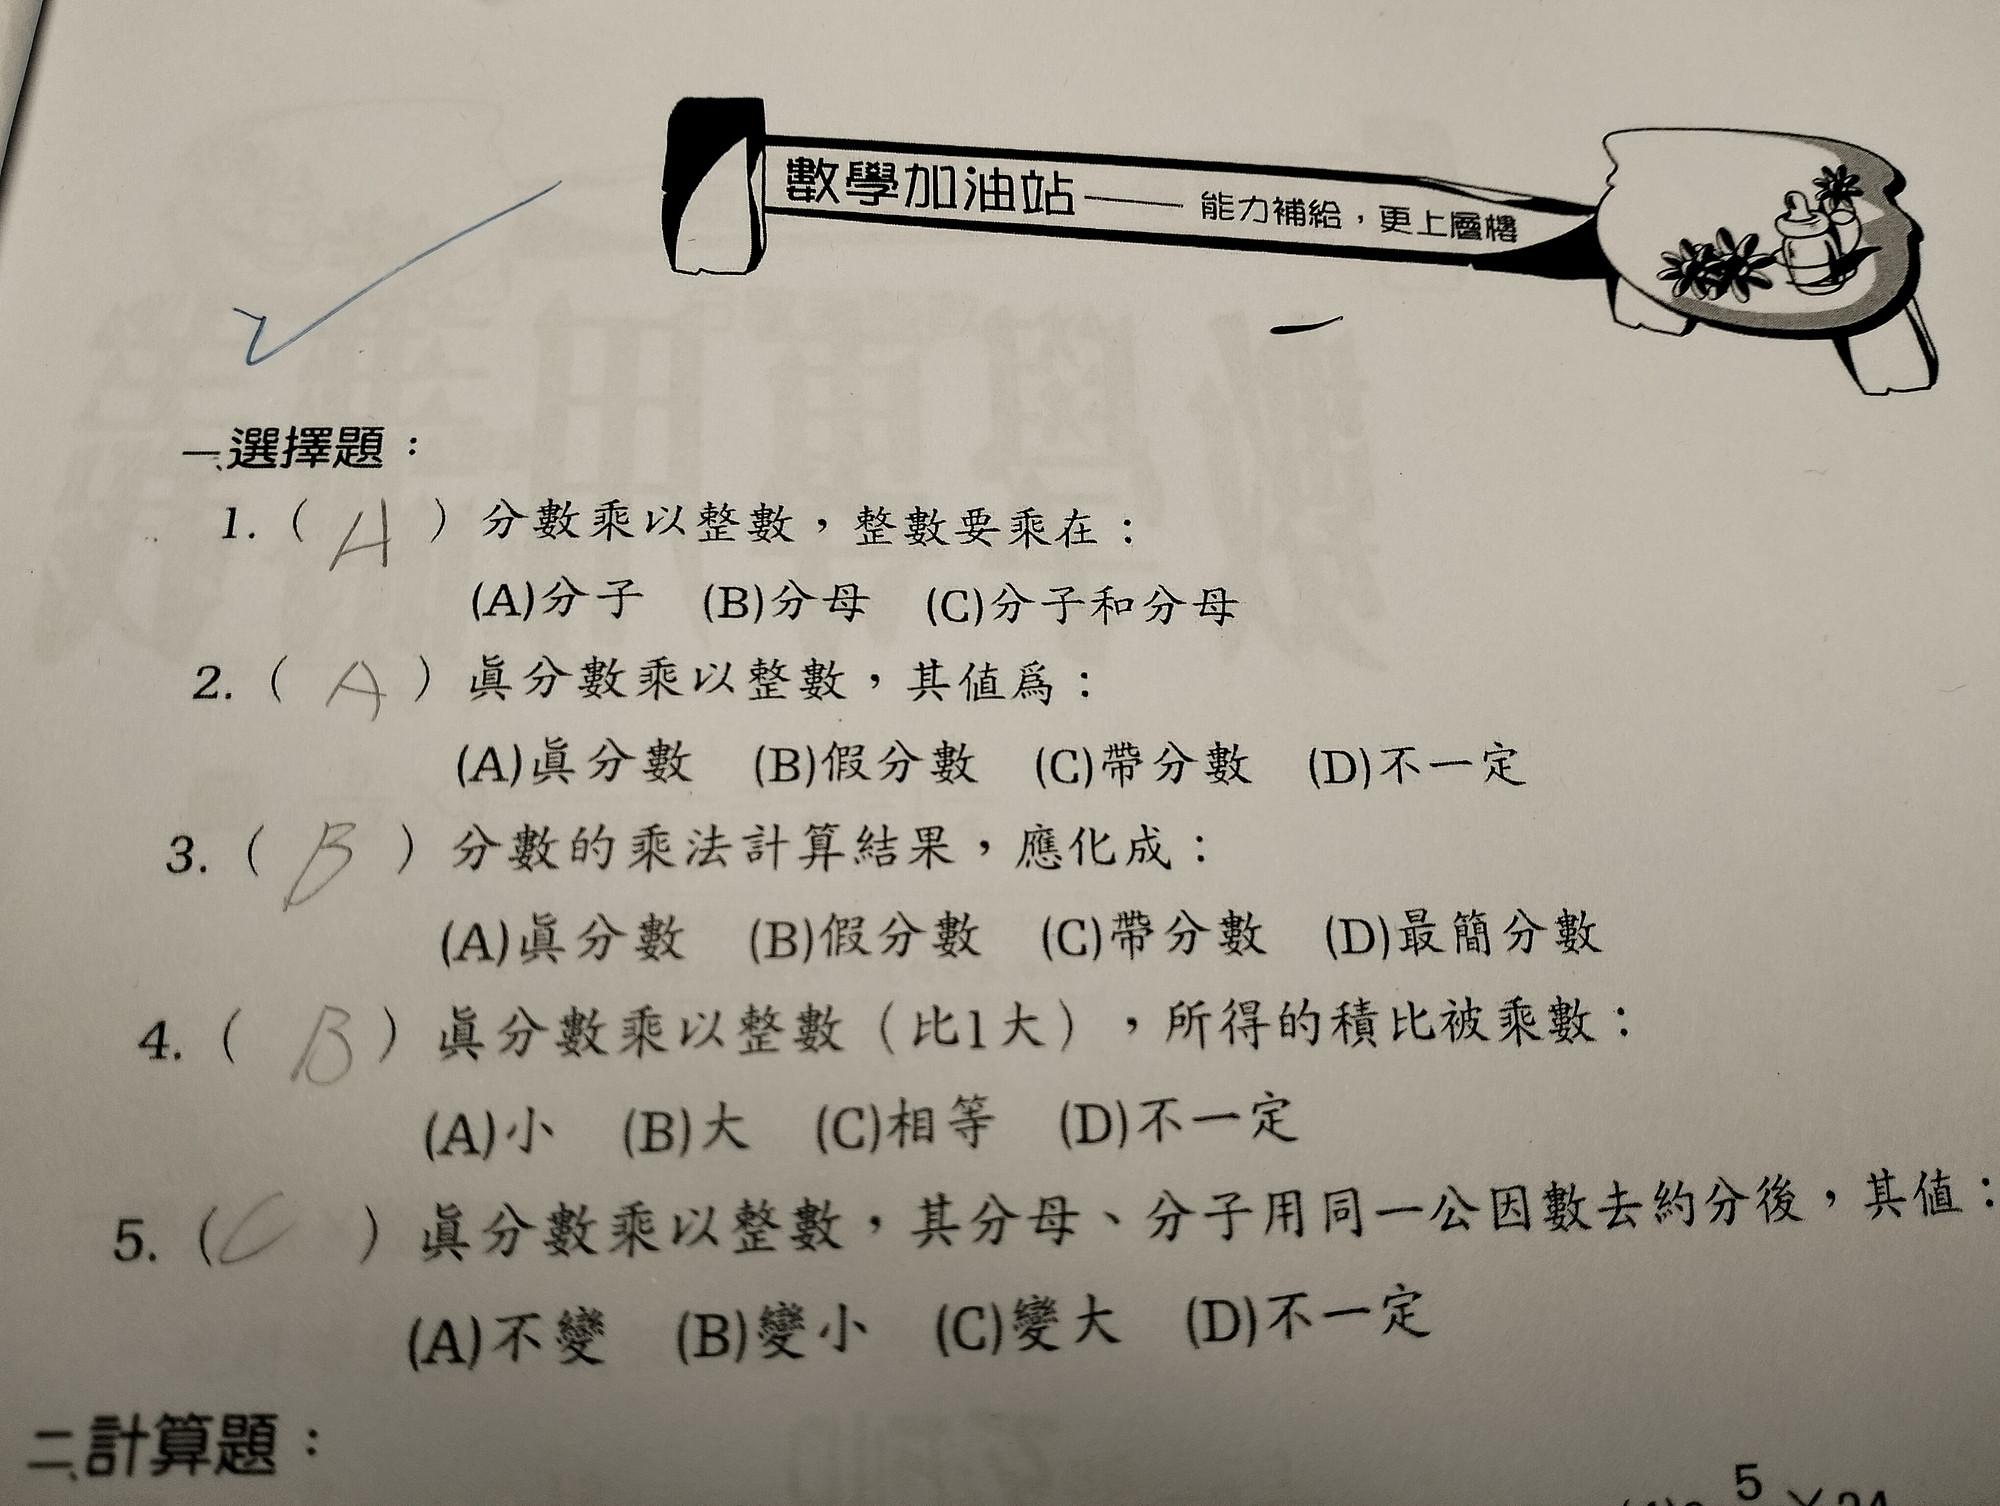 數學加油站——能力補給，更上層樓
一、選擇題：
1.（ A ）分數乘以整數，整數要乘在：
(A)分子 (B)分母 (C)分子和分母
2.（ A ）眞分數乘以整數，其值爲：
(A)眞分數 (B)假分數 (C)帶分數 (D)不一定
3.（ B ）分數的乘法計算結果，應化成：
(A)眞分數 (B)假分數 (C)帶分數 (D)最簡分數
4.（ B ）眞分數乘以整數（比1大），所得的積比被乘數：
(A)小 (B)大 (C)相等 (D)不一定
5.（ C ）眞分數乘以整數，其分母、分子用同一公因數去約分後，其值：
(A)不變 (B)變小 (C)變大 (D)不一定
二、計算題：